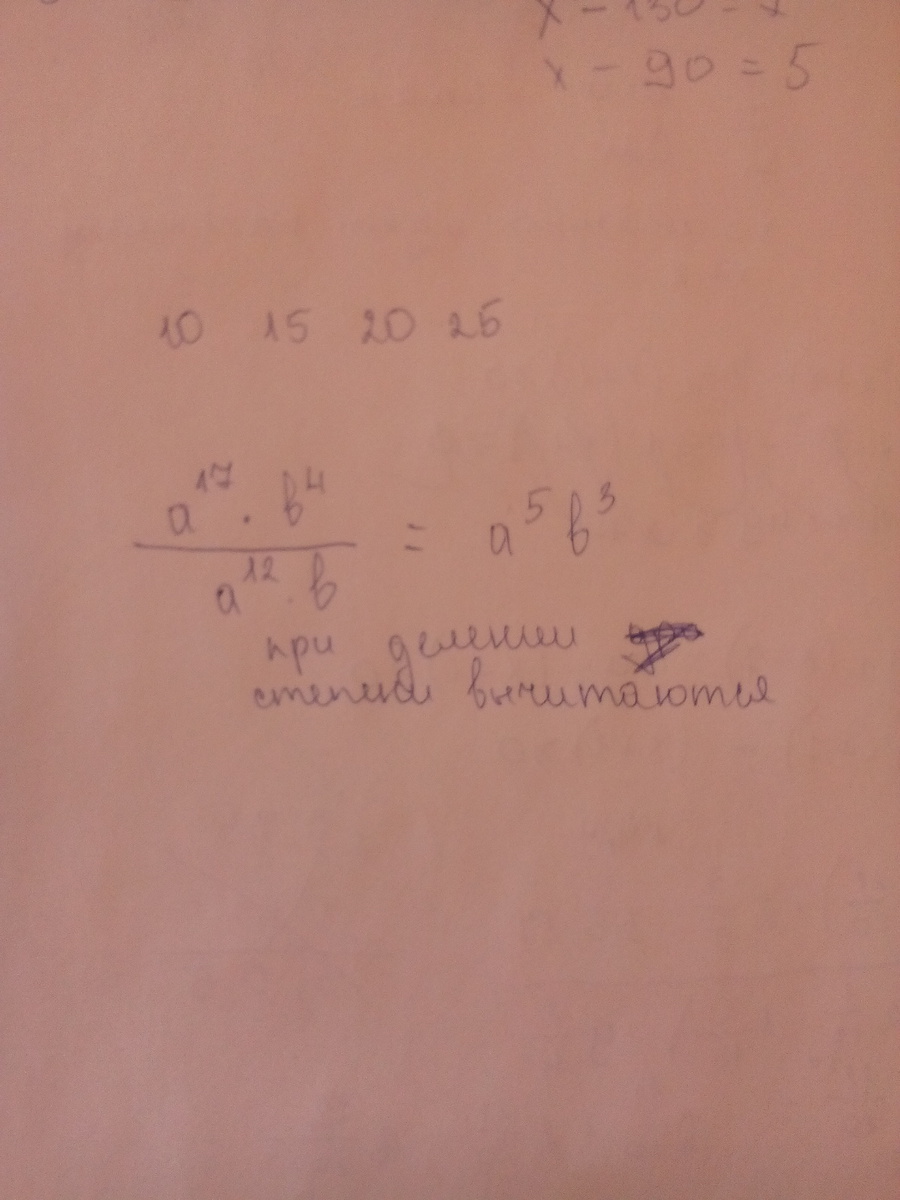 x - 130 =
x - 90 = 5
10 15 20 25
a^17 · b^4 / a^12 · b = a^5 b^3
при делении
степени вычитаются